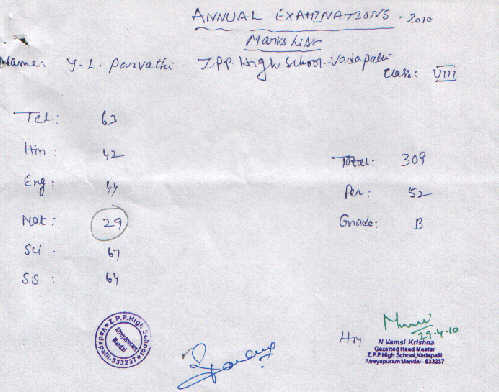 ANNUAL EXAMINATIONS - 2010
Marks List
Name: Y. L. Parvathi Z.P.P. High School. Vadapalli
Class: VIII
Tel: 63
Hin: 42
Eng: 44
Mat: 29
Sci: 67
SS: 64
Total: 309
Per: 52
Grade: B
29-4-10
Hm
N Vamsi Krishna
Gazetted Head Master
Z.P.P. High School, Vadapalli
Z.P.P. High School